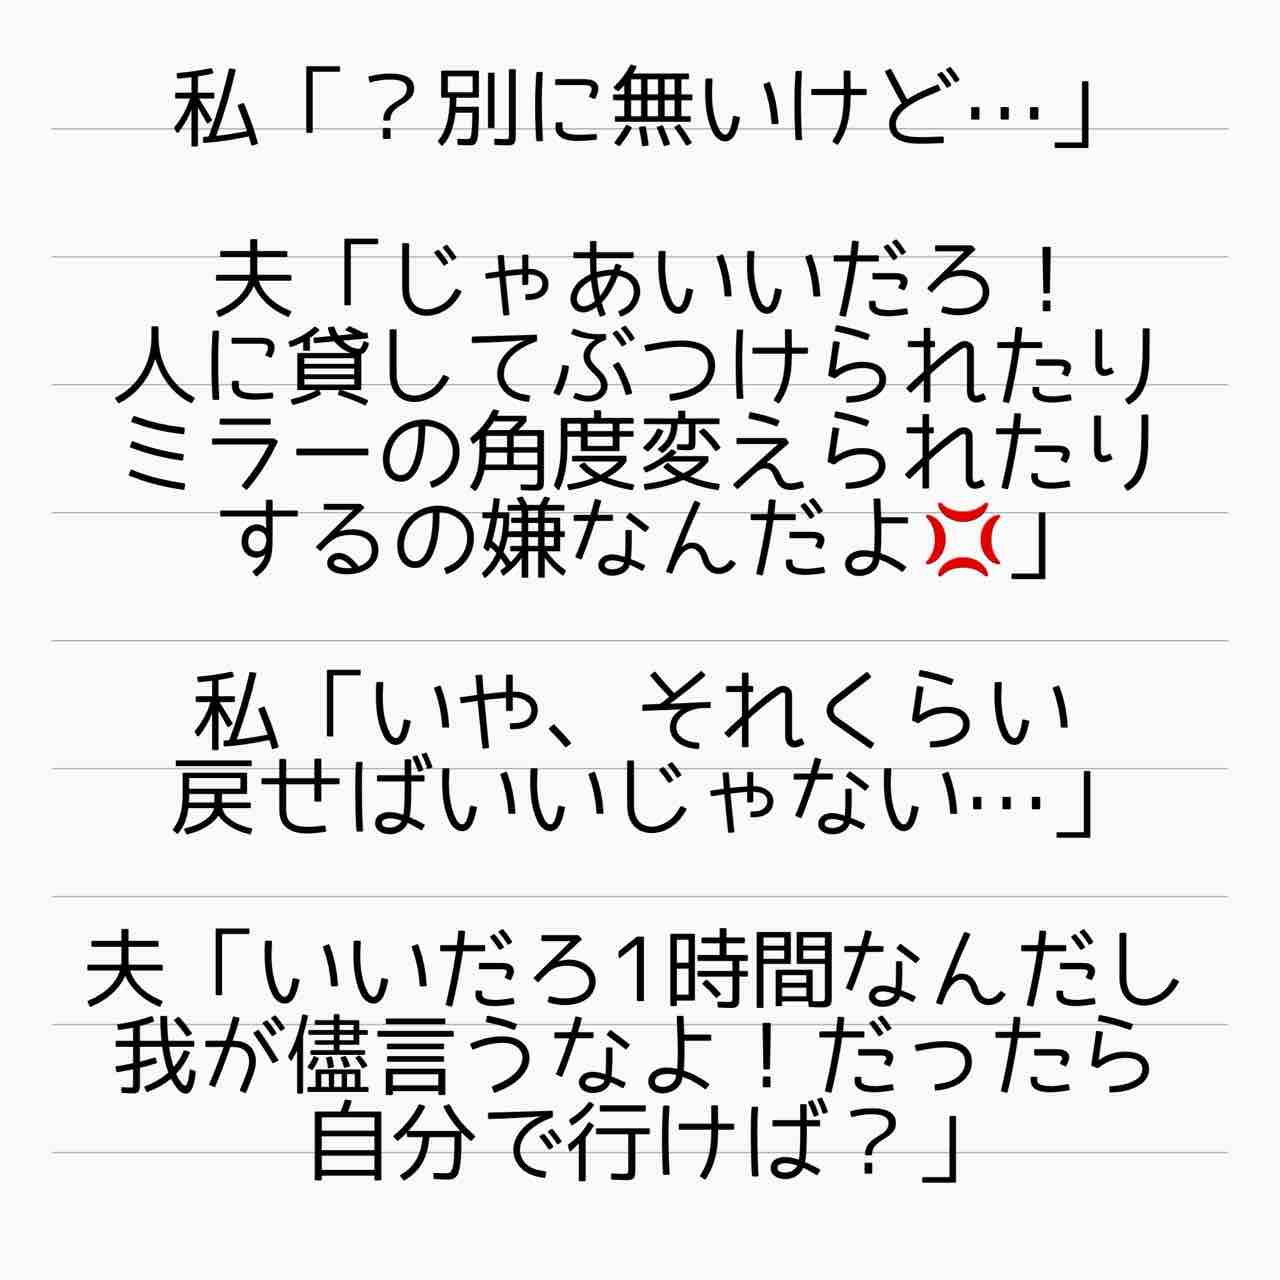 私「？別に無いけど…」
夫「じゃあいいだろ！
人に貸してぶつけられたり
ミラーの角度変えられたり
するの嫌なんだよ💢」
私「いや、それくらい
戻せばいいじゃない…」
夫「いいだろ1時間なんだし
我が儘言うなよ！だったら
自分で行けば？」